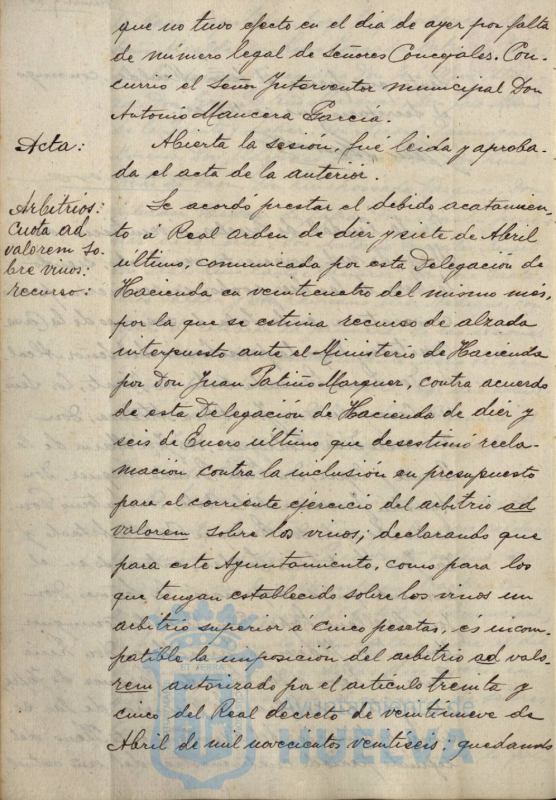 que no tuvo efecto en el dia de ayer por falta
de número legal de señores Concejales. Con-
currió el señor Interventor municipal Don
Antonio Mancera García.
Acta:
Abierta la sesión, fué leida y aproba-
da el acta de la anterior.
Arbitrios:
Cuota ad
valorem so-
bre vinos:
recurso:
Se acordó prestar el debido acatamien-
to á Real Orden de diez y siete de Abril
último, comunicada por esta Delegación de
Hacienda en veinticuatro del mismo mes,
por la que se estima recurso de alzada
interpuesto ante el Ministerio de Hacienda
por Don Juan Patiño Marquez, contra acuerdo
de esta Delegación de Hacienda de diez y
seis de Enero último que desestimó recla-
mación contra la inclusión en presupuesto
para el corriente ejercicio del arbitrio ad
valorem sobre los vinos; declarando que
para este Ayuntamiento, como para los
que tengan establecido sobre los vinos un
arbitrio superior á cinco pesetas, és incom-
patible la imposición del arbitrio ad valo-
rem autorizado por el artículo treinta y
cinco del Real decreto de veintinueve de
Abril de mil novecientos veintiseis: quedando
Ayuntamiento de
HUELVA